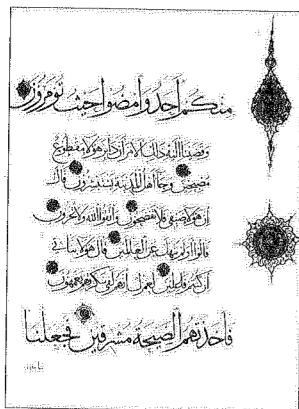 منكم أحد وامضوا حيث تؤمرون
وقضينا إليه ذلك الأمر أن دابر هؤلاء مقطوع
مصبحين وجاء أهل المدينة يستبشرون قال
إن هؤلاء ضيفي فلا تفضحون واتقوا الله ولا تخزون
قالوا أولم ننهك عن العالمين قال هؤلاء بناتي
إن كنتم فاعلين لعمرك إنهم لفي سكرتهم يعمهون
فأخذتهم الصيحة مشرقين فجعلنا